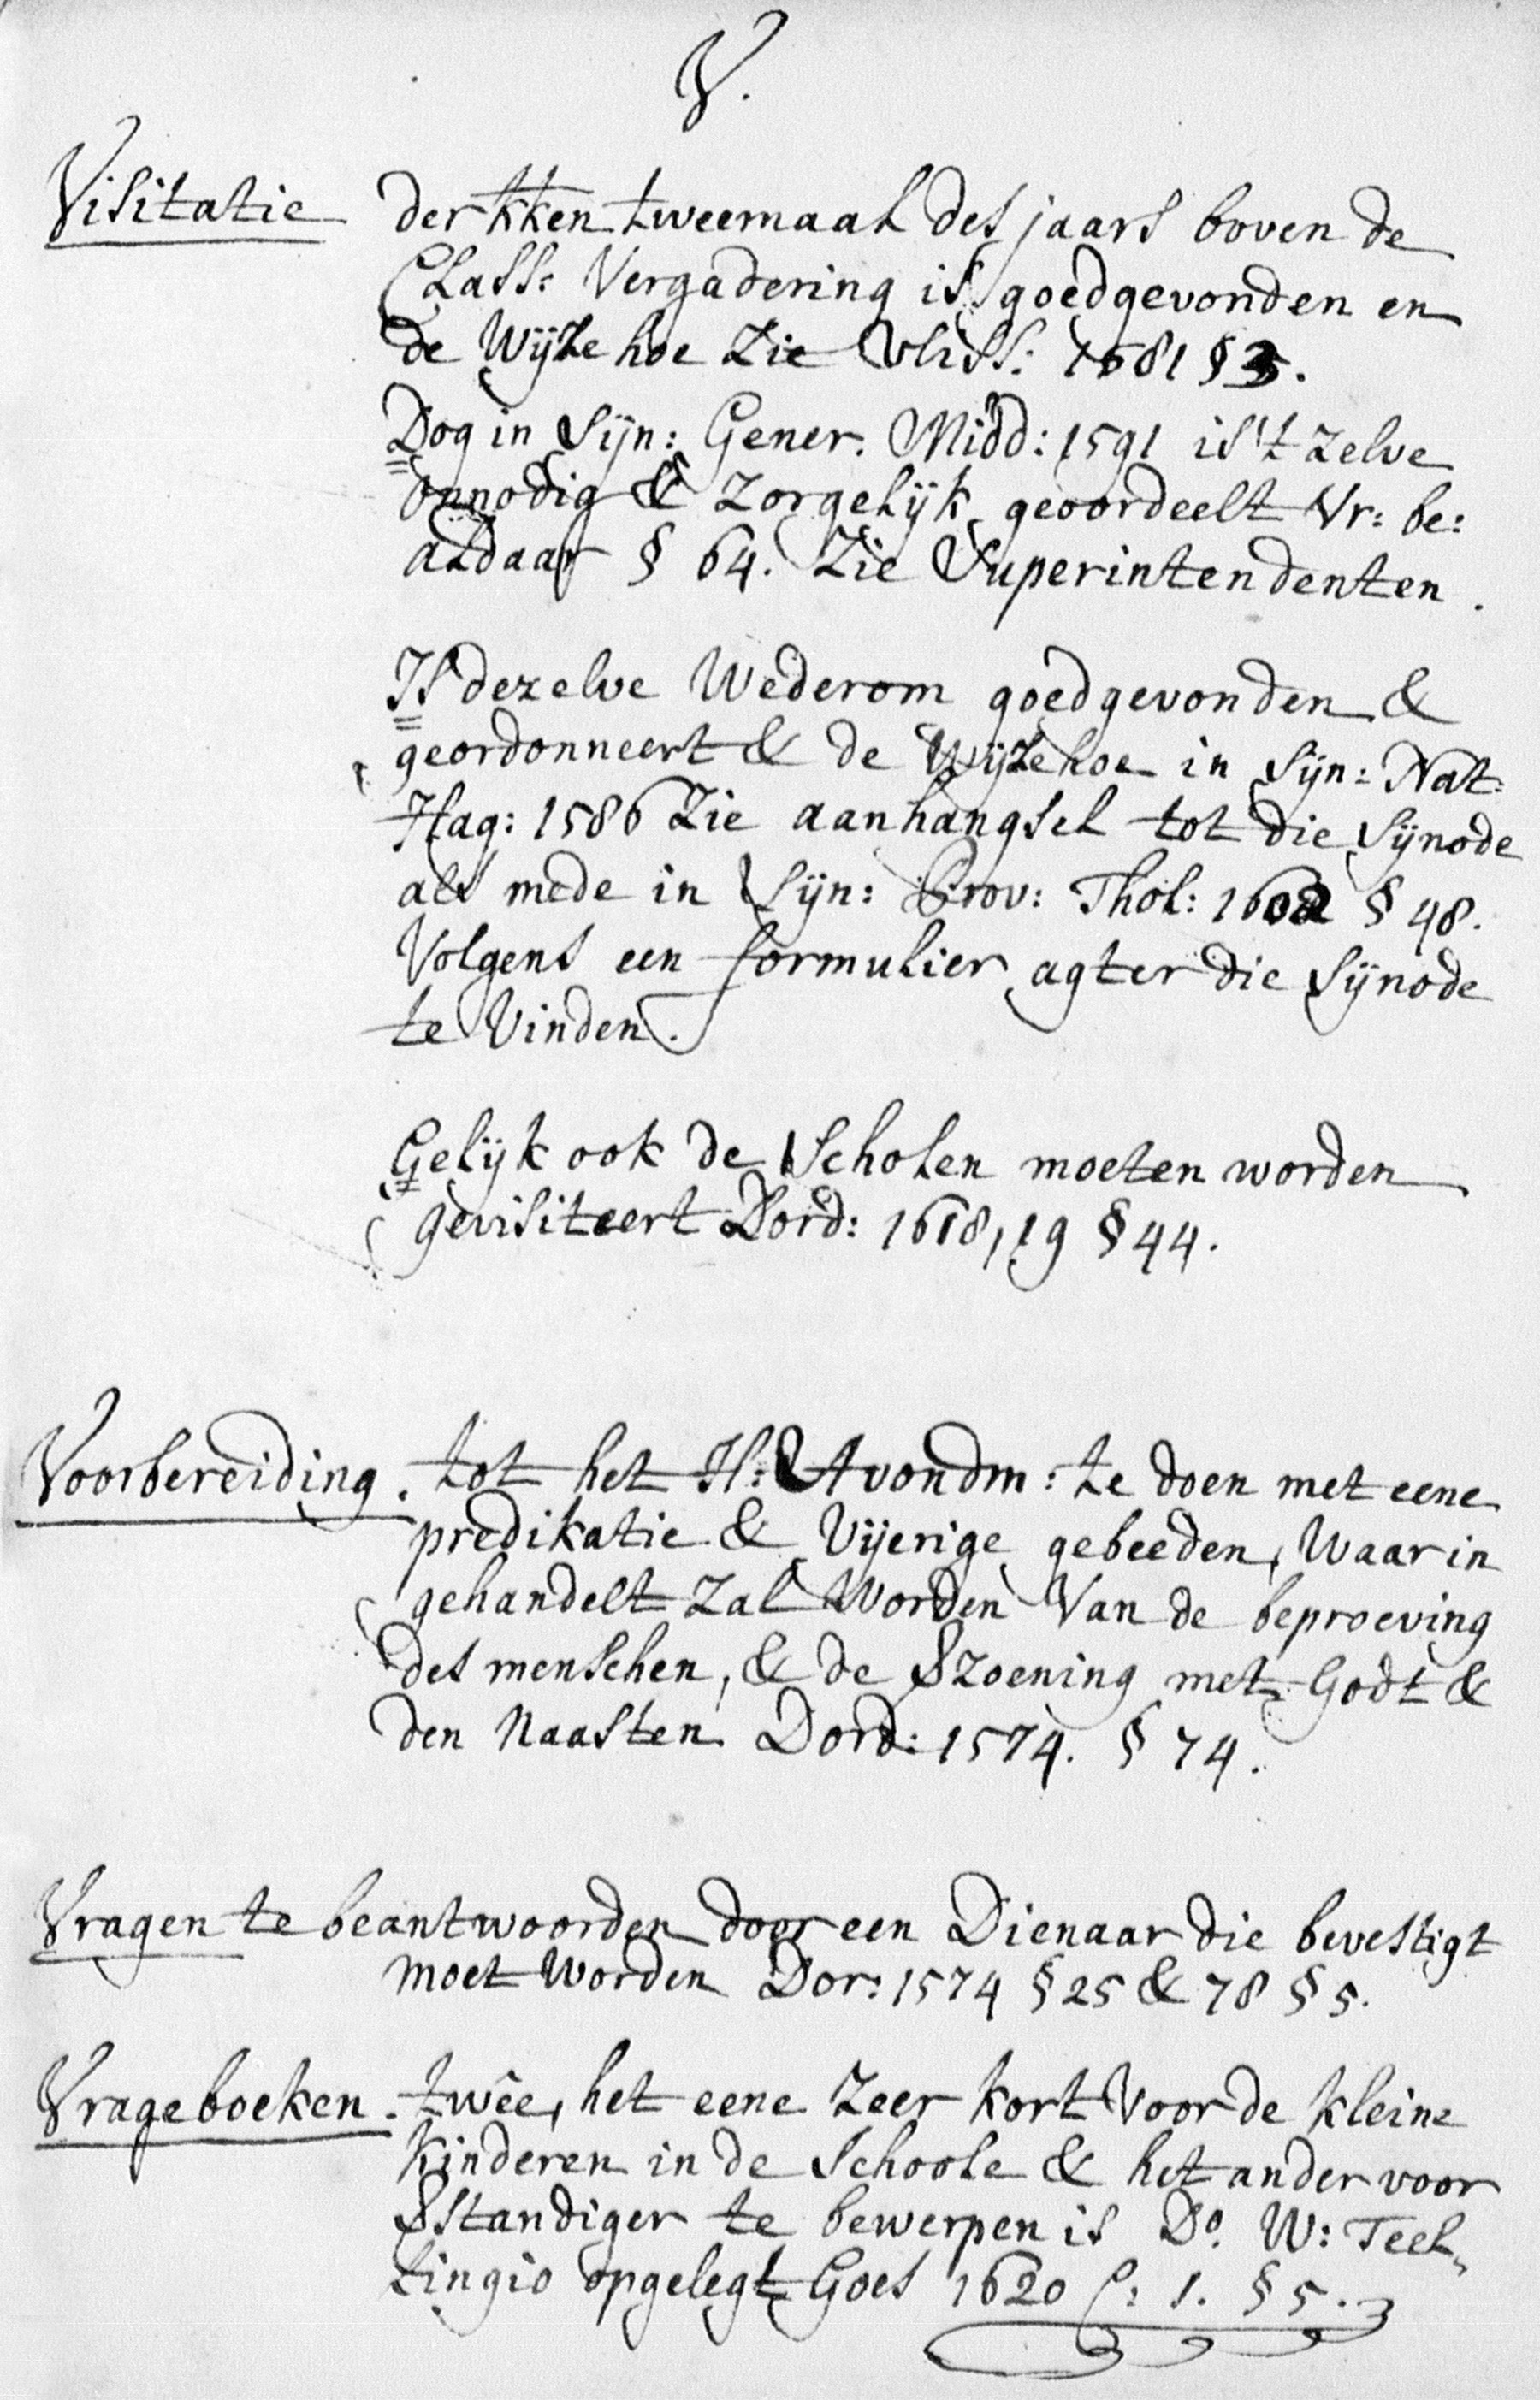 V.
Visitatie der kken tweemaal des jaars boven de
Class: Vergadering is goedgevonden en
de Wijze hoe Zie Vliss: 1581 § 3.
Dog in Sijn: Gener. Midd: 1591 is 't zelve
onnodig & zorgelijk geoordeelt Vr: be:
aldaar § 64. Zie Superintendenten.
Is dezelve Wederom goedgevonden &
geordonneert & de Wijze hoe in Sijn: Nat:
Hag: 1586 Zie aanhangsel tot die Sijnode
als mede in Sijn: Prov: Thol: 1602 § 48.
Volgens een formulier agter die Sijnode
te Vinden.
Gelijk ook de Scholen moeten worden
gevisiteert Dord: 1618, 19 § 44.
Voorbereiding. tot het H: Avondm: te doen met eene
predikatie & Vijerige gebeeden, Waar in
gehandelt Zal Worden Van de beproeving
des menschen, & de Szoening met Godt &
den Naasten Dord: 1574. § 74.
Vragen te beantwoorden door een Dienaar die bevestigt
moet Worden Dor: 1574 § 25 & 78 § 5.
Vrageboeken. twêe, het eene Zeer kort Voor de kleine
kinderen in de Schoole & het ander voor
Sstandiger te bewerpen is Do. W: Teel„
lingio opgelegt Goes 1620 S: 1. § 5.